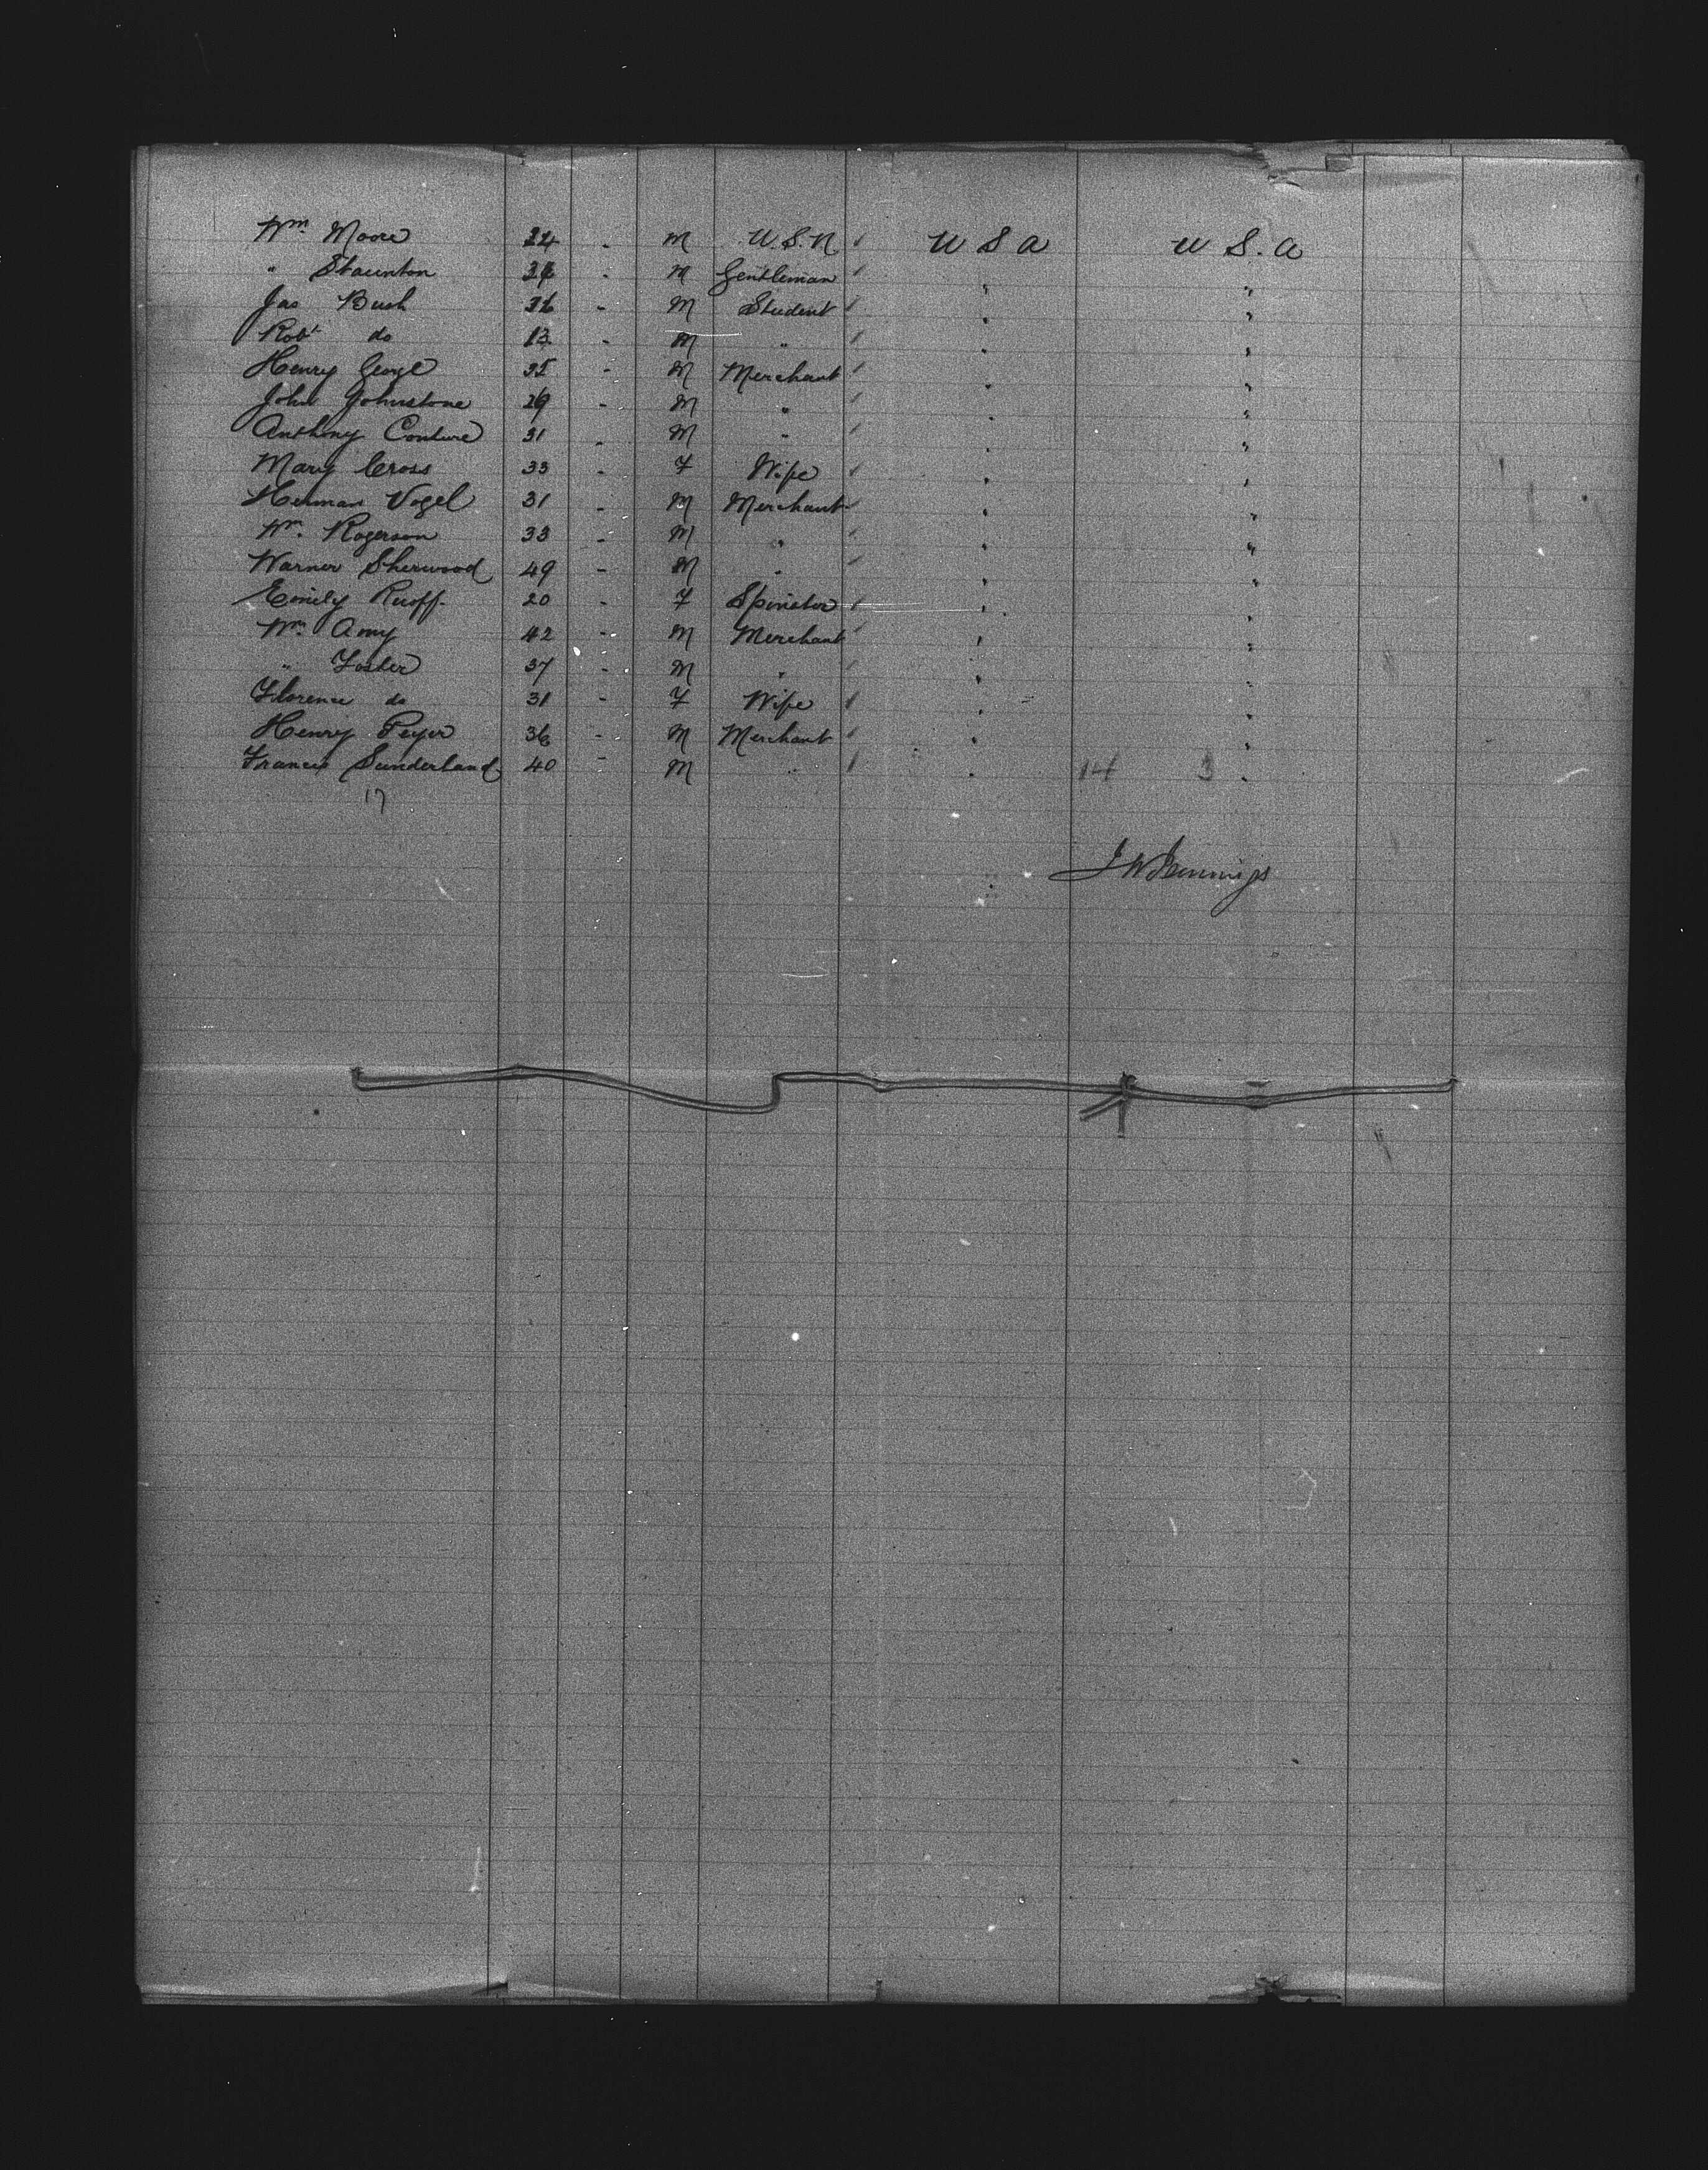 Wm. Moore 24 - M U.S.N. U S A U S. A
" Staunton 34 - M Gentleman " "
Jas Bush 26 - M Student " "
Robt do 13 - M " " "
Henry George 25 - M Merchant " "
John Johnstone 29 - M " " "
Anthony Couture 31 - M " " "
Mary Cross 33 - F Wife " "
Herman Vogel 31 - M Merchant " "
Wm. Rogerson 33 - M " " "
Warner Sherwood 49 - M " " "
Emily Ruoff 20 - F Spinster " "
Wm. Amy 42 - M Merchant " "
" Foster 37 - M " " "
Florence do 31 - F Wife " "
Henry Peyer 36 - M Merchant " "
Francis Sunderland 40 - M " " 14 3 "
17
J W Jennings